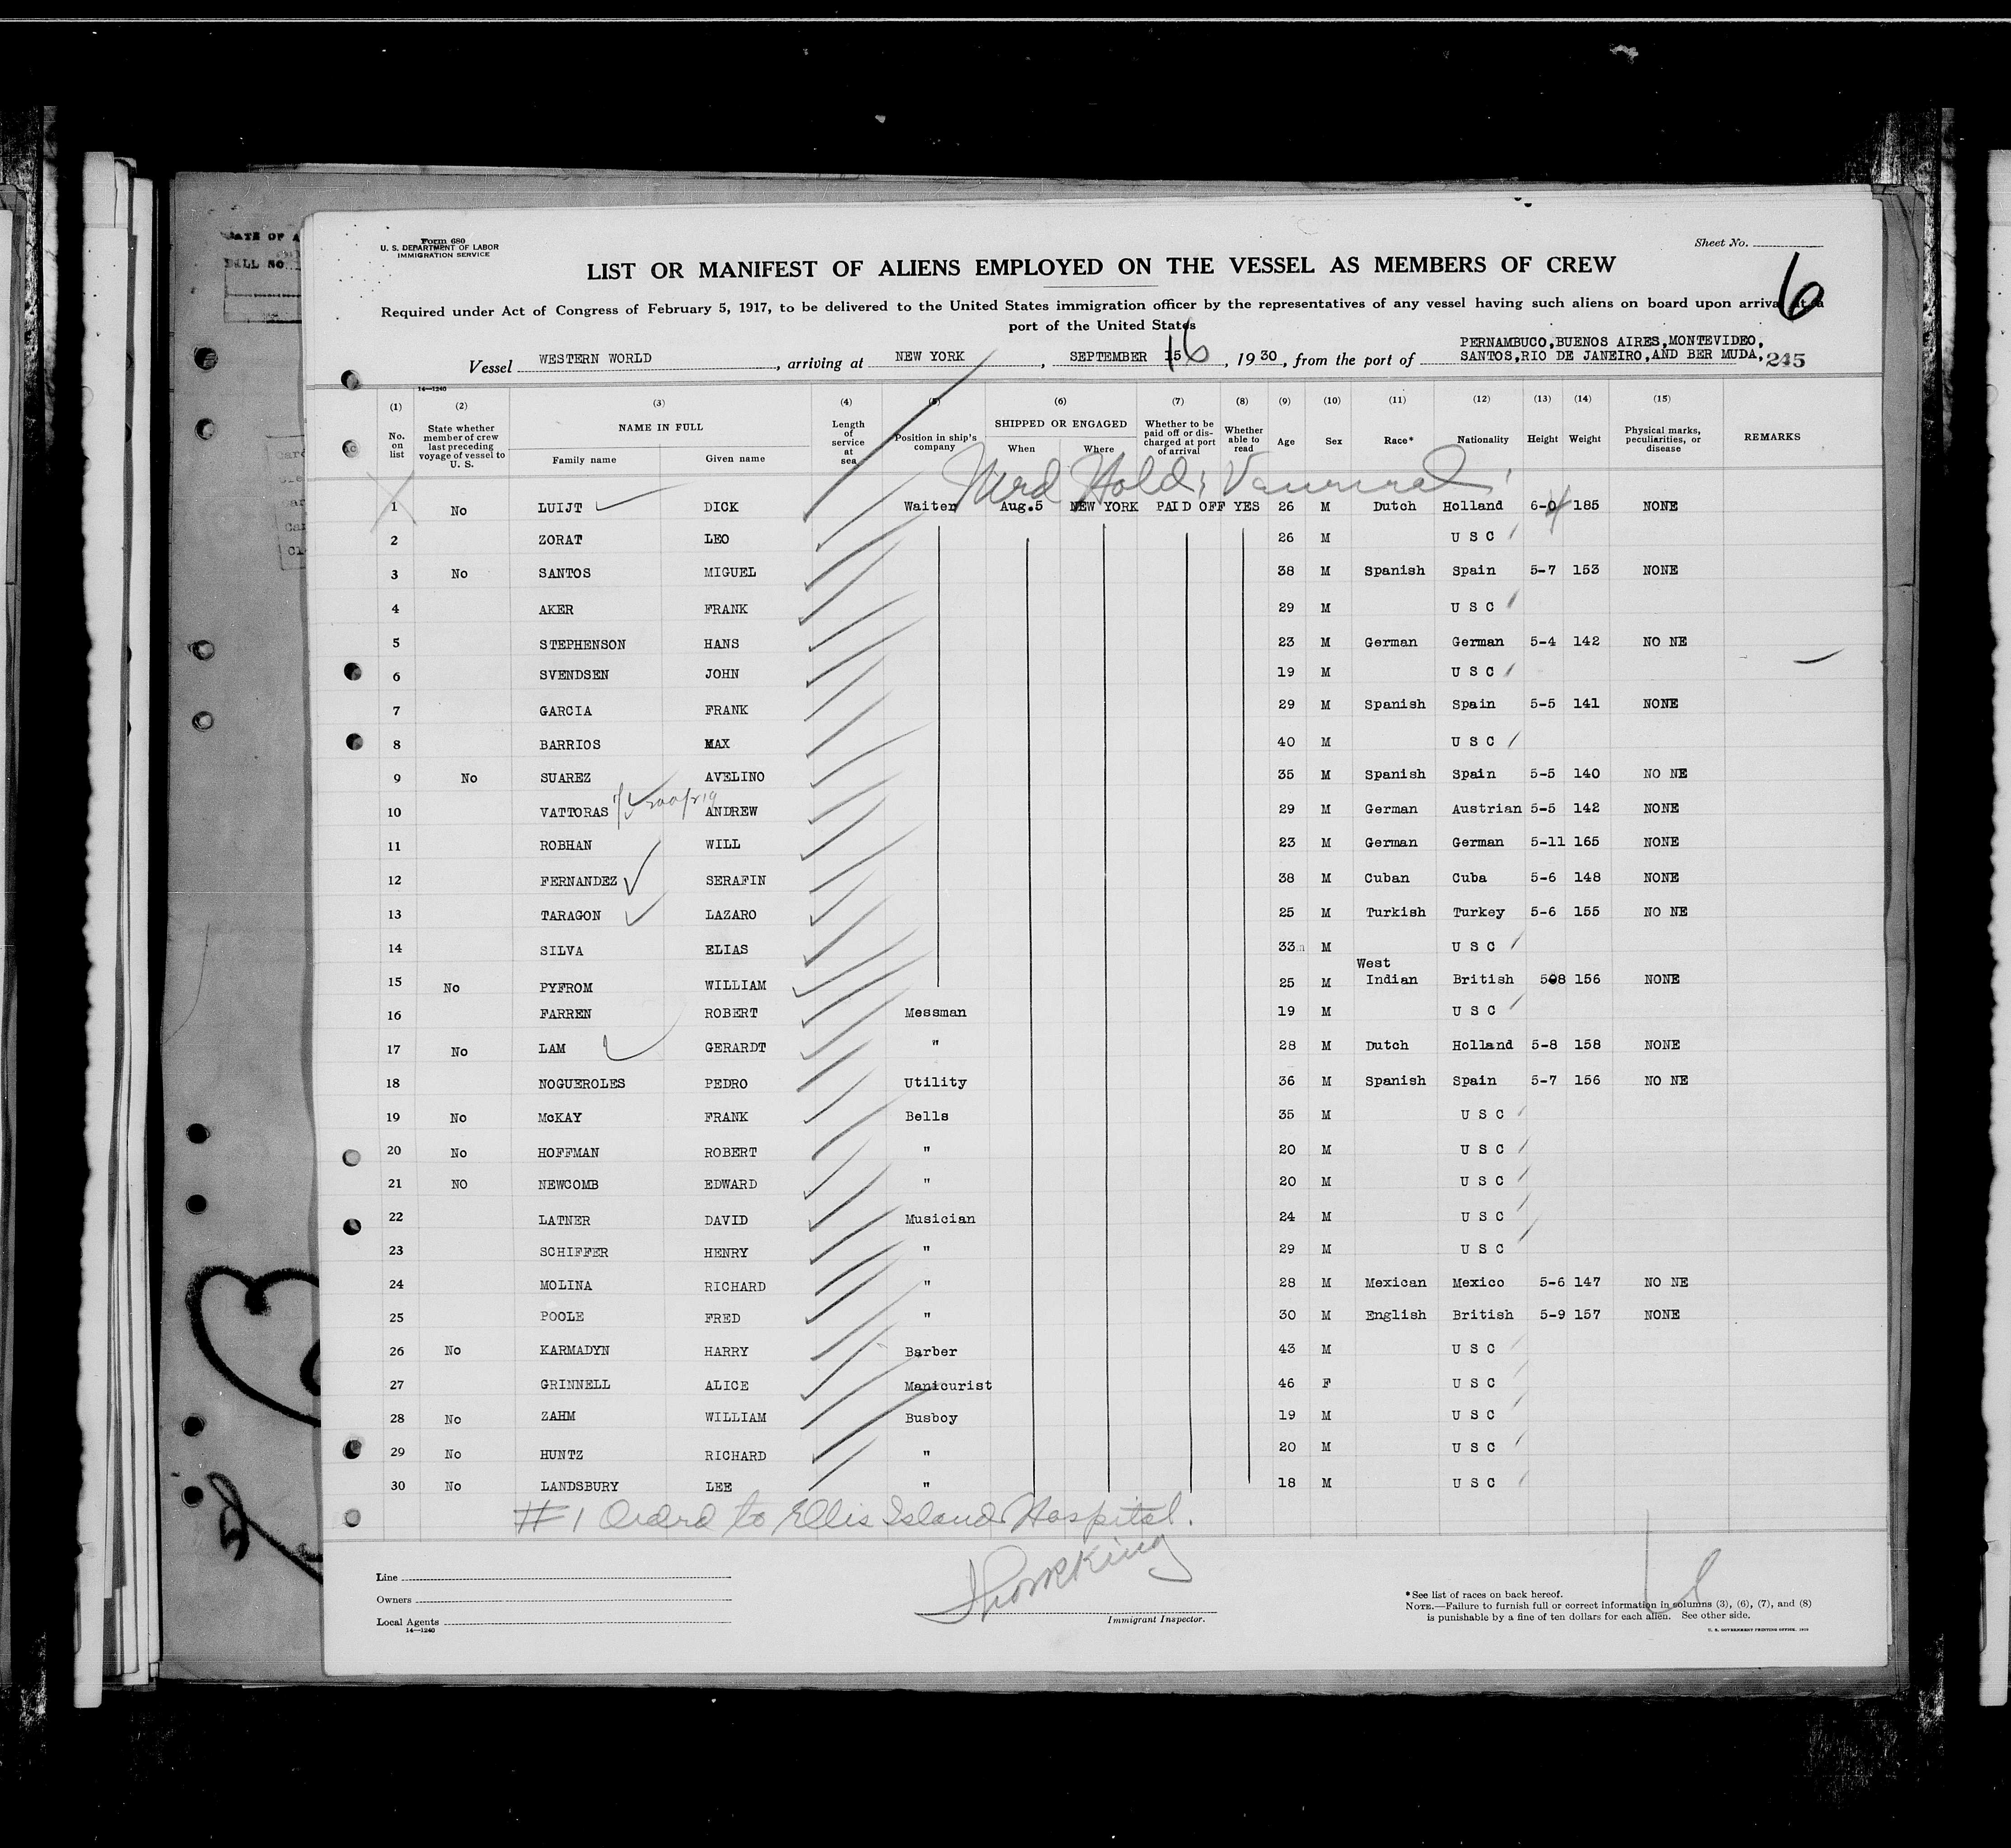 Form 680
U. S. DEPARTMENT OF LABOR
IMMIGRATION SERVICE
Sheet No.
6
LIST OR MANIFEST OF ALIENS EMPLOYED ON THE VESSEL AS MEMBERS OF CREW
Required under Act of Congress of February 5, 1917, to be delivered to the United States immigration officer by the representatives of any vessel having such aliens on board upon arrival at a
port of the United States
Vessel WESTERN WORLD, arriving at NEW YORK, SEPTEMBER 16, 1930, from the port of PERNAMBUCO,BUENOS AIRES,MONTEVIDEO,
SANTOS,RIO DE JANEIRO,AND BER MUDA, 245
14—1240
(1) (2) (3) (4) (5) (6) (7) (8) (9) (10) (11) (12) (13) (14) (15)
No. on list State whether member of crew last preceding voyage of vessel to U. S. NAME IN FULL Family name Given name Length of service at sea Position in ship's company SHIPPED OR ENGAGED When Where Whether to be paid off or discharged at port of arrival Whether able to read Age Sex Race* Nationality Height Weight Physical marks, peculiarities, or disease REMARKS
1 No LUIJT DICK Waiter Aug.5 NEW YORK PAID OFF YES 26 M Dutch Holland 6-0 185 NONE
2 ZORAT LEO 26 M U S C
3 No SANTOS MIGUEL 38 M Spanish Spain 5-7 153 NONE
4 AKER FRANK 29 M U S C
5 STEPHENSON HANS 23 M German German 5-4 142 NO NE
6 SVENDSEN JOHN 19 M U S C
7 GARCIA FRANK 29 M Spanish Spain 5-5 141 NONE
8 BARRIOS MAX 40 M U S C
9 No SUAREZ AVELINO 35 M Spanish Spain 5-5 140 NO NE
10 VATTORAS ANDREW 29 M German Austrian 5-5 142 NONE
11 ROBHAN WILL 23 M German German 5-11 165 NONE
12 FERNANDEZ SERAFIN 38 M Cuban Cuba 5-6 148 NONE
13 TARAGON LAZARO 25 M Turkish Turkey 5-6 155 NO NE
14 SILVA ELIAS 33 M U S C
15 No PYFROM WILLIAM 25 M West Indian British 5-8 156 NONE
16 FARREN ROBERT Messman 19 M U S C
17 No LAM GERARDT " 28 M Dutch Holland 5-8 158 NONE
18 NOGUEROLES PEDRO Utility 36 M Spanish Spain 5-7 156 NO NE
19 No McKAY FRANK Bells 35 M U S C
20 No HOFFMAN ROBERT " 20 M U S C
21 NO NEWCOMB EDWARD " 20 M U S C
22 LATNER DAVID Musician 24 M U S C
23 SCHIFFER HENRY " 29 M U S C
24 MOLINA RICHARD " 28 M Mexican Mexico 5-6 147 NO NE
25 POOLE FRED " 30 M English British 5-9 157 NONE
26 No KARMADYN HARRY Barber 43 M U S C
27 GRINNELL ALICE Manicurist 46 F U S C
28 No ZAHM WILLIAM Busboy 19 M U S C
29 No HUNTZ RICHARD " 20 M U S C
30 No LANDSBURY LEE " 18 M U S C
#1 Ordrd to Ellis Island Hospital.
Line
Owners
Local Agents
14—1240
Immigrant Inspector.
*See list of races on back hereof.
NOTE.—Failure to furnish full or correct information in columns (3), (6), (7), and (8)
is punishable by a fine of ten dollars for each alien. See other side.
U. S. GOVERNMENT PRINTING OFFICE